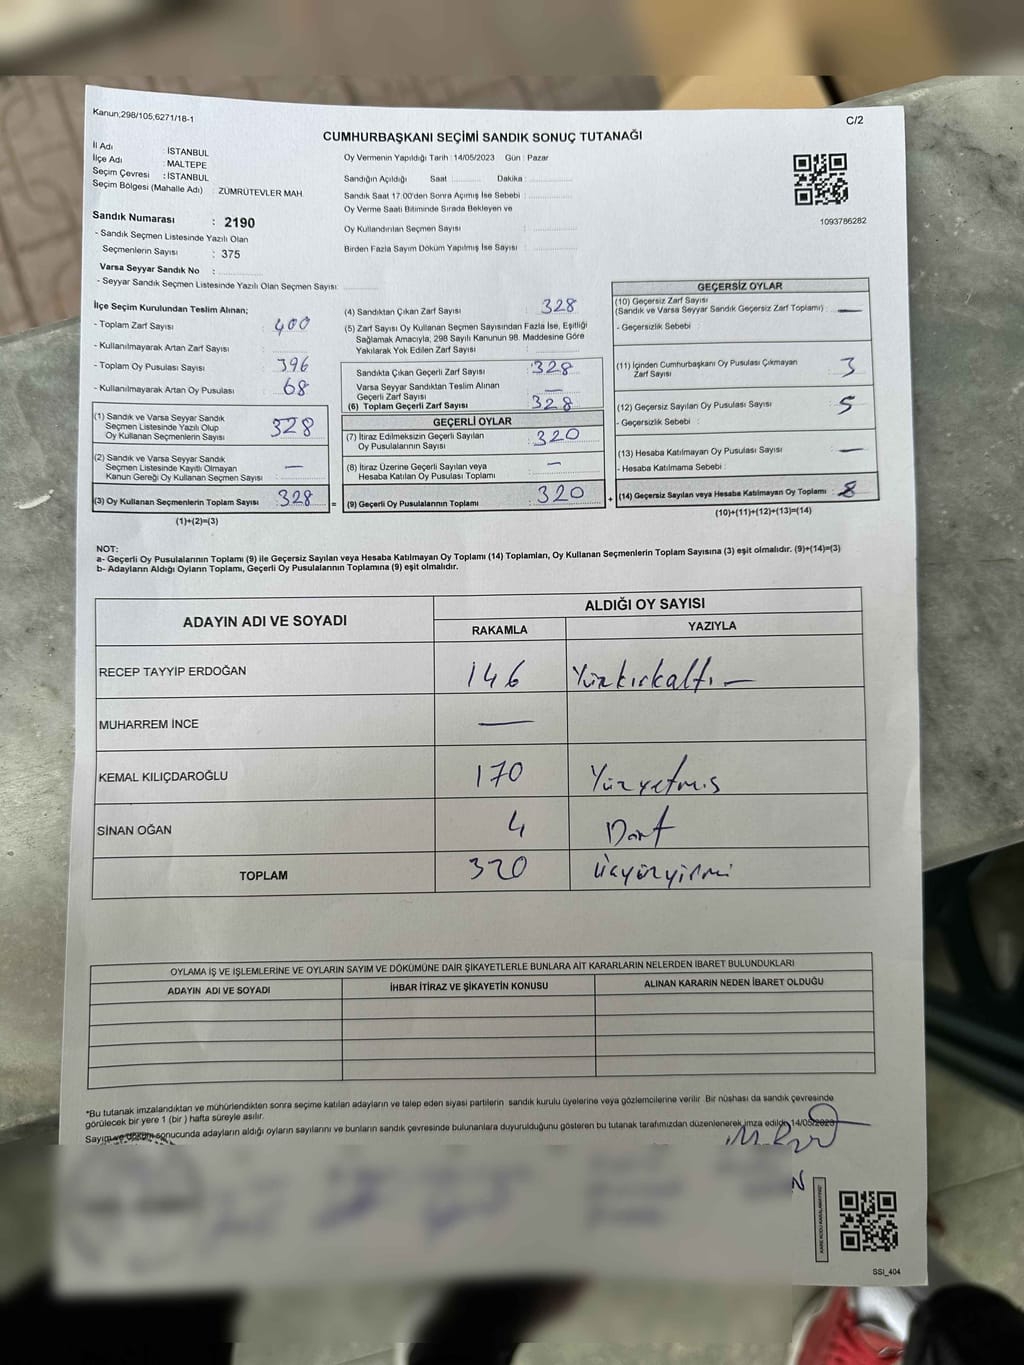 Kanun;298/105,6271/18-1
C/2
CUMHURBAŞKANI SEÇİMİ SANDIK SONUÇ TUTANAĞI
İl Adı : İSTANBUL
İlçe Adı : MALTEPE
Seçim Çevresi : İSTANBUL
Seçim Bölgesi (Mahalle Adı) : ZÜMRÜTEVLER MAH.
Sandık Numarası : 2190
- Sandık Seçmen Listesinde Yazılı Olan
Seçmenlerin Sayısı : 375
Varsa Seyyar Sandık No :
- Seyyar Sandık Seçmen Listesinde Yazılı Olan Seçmen Sayısı:
Oy Vermenin Yapıldığı Tarih : 14/05/2023 Gün : Pazar
Sandığın Açıldığı Saat : Dakika :
Sandık Saat 17:00'den Sonra Açımış İse Sebebi :
Oy Verme Saati Bitiminde Sırada Bekleyen ve
Oy Kullandırılan Seçmen Sayısı :
Birden Fazla Sayım Döküm Yapılmış İse Sayısı :
1093786282
İlçe Seçim Kurulundan Teslim Alınan;
- Toplam Zarf Sayısı : 400
- Kullanılmayarak Artan Zarf Sayısı :
- Toplam Oy Pusulası Sayısı : 396
- Kullanılmayarak Artan Oy Pusulası : 68
(1) Sandık ve Varsa Seyyar Sandık
Seçmen Listesinde Yazılı Olup
Oy Kullanan Seçmenlerin Sayısı : 328
(2) Sandık ve Varsa Seyyar Sandık
Seçmen Listesinde Kayıtlı Olmayan
Kanun Gereği Oy Kullanan Seçmen Sayısı : —
(3) Oy Kullanan Seçmenlerin Toplam Sayısı : 328
(1)+(2)=(3)
(4) Sandıktan Çıkan Zarf Sayısı : 328
(5) Zarf Sayısı Oy Kullanan Seçmen Sayısından Fazla İse, Eşitliği
Sağlamak Amacıyla, 298 Sayılı Kanunun 98. Maddesine Göre
Yakılarak Yok Edilen Zarf Sayısı :
Sandıkta Çıkan Geçerli Zarf Sayısı : 328
Varsa Seyyar Sandıktan Teslim Alınan
Geçerli Zarf Sayısı : —
(6) Toplam Geçerli Zarf Sayısı : 328
GEÇERLİ OYLAR
(7) İtiraz Edilmeksizin Geçerli Sayılan
Oy Pusulalarının Sayısı : 320
(8) İtiraz Üzerine Geçerli Sayılan veya
Hesaba Katılan Oy Pusulası Toplamı : —
= (9) Geçerli Oy Pusulalarının Toplamı : 320
GEÇERSİZ OYLAR
(10) Geçersiz Zarf Sayısı
(Sandık ve Varsa Seyyar Sandık Geçersiz Zarf Toplamı) : —
- Geçersizlik Sebebi :
(11) İçinden Cumhurbaşkanı Oy Pusulası Çıkmayan
Zarf Sayısı : 3
(12) Geçersiz Sayılan Oy Pusulası Sayısı : 5
- Geçersizlik Sebebi :
(13) Hesaba Katılmayan Oy Pusulası Sayısı : —
- Hesaba Katılmama Sebebi :
+ (14) Geçersiz Sayılan veya Hesaba Katılmayan Oy Toplamı : 8
(10)+(11)+(12)+(13)=(14)
NOT:
a- Geçerli Oy Pusulalarının Toplamı (9) ile Geçersiz Sayılan veya Hesaba Katılmayan Oy Toplamı (14) Toplamları, Oy Kullanan Seçmenlerin Toplam Sayısına (3) eşit olmalıdır. (9)+(14)=(3)
b- Adayların Aldığı Oyların Toplamı, Geçerli Oy Pusulalarının Toplamına (9) eşit olmalıdır.
ADAYIN ADI VE SOYADI
ALDIĞI OY SAYISI
RAKAMLA YAZIYLA
RECEP TAYYİP ERDOĞAN 146 Yüzkırkaltı —
MUHARREM İNCE —
KEMAL KILIÇDAROĞLU 170 Yüzyetmiş
SİNAN OĞAN 4 Dört
TOPLAM 320 Üçyüzyirmi
OYLAMA İŞ VE İŞLEMLERİNE VE OYLARIN SAYIM VE DÖKÜMÜNE DAİR ŞİKAYETLERLE BUNLARA AİT KARARLARIN NELERDEN İBARET BULUNDUKLARI
ADAYIN ADI VE SOYADI İHBAR İTİRAZ VE ŞİKAYETİN KONUSU ALINAN KARARIN NEDEN İBARET OLDUĞU
*Bu tutanak imzalandıktan ve mühürlendikten sonra seçime katılan adayların ve talep eden siyasi partilerin sandık kurulu üyelerine veya gözlemcilerine verilir. Bir nüshası da sandık çevresinde
görülecek bir yere 1 (bir) hafta süreyle asılır.
Sayım ve döküm sonucunda adayların aldığı oyların sayılarını ve bunların sandık çevresinde bulunanlara duyurulduğunu gösteren bu tutanak tarafımızdan düzenlenerek imza edildi. 14/05/2023
N
SSİ_404